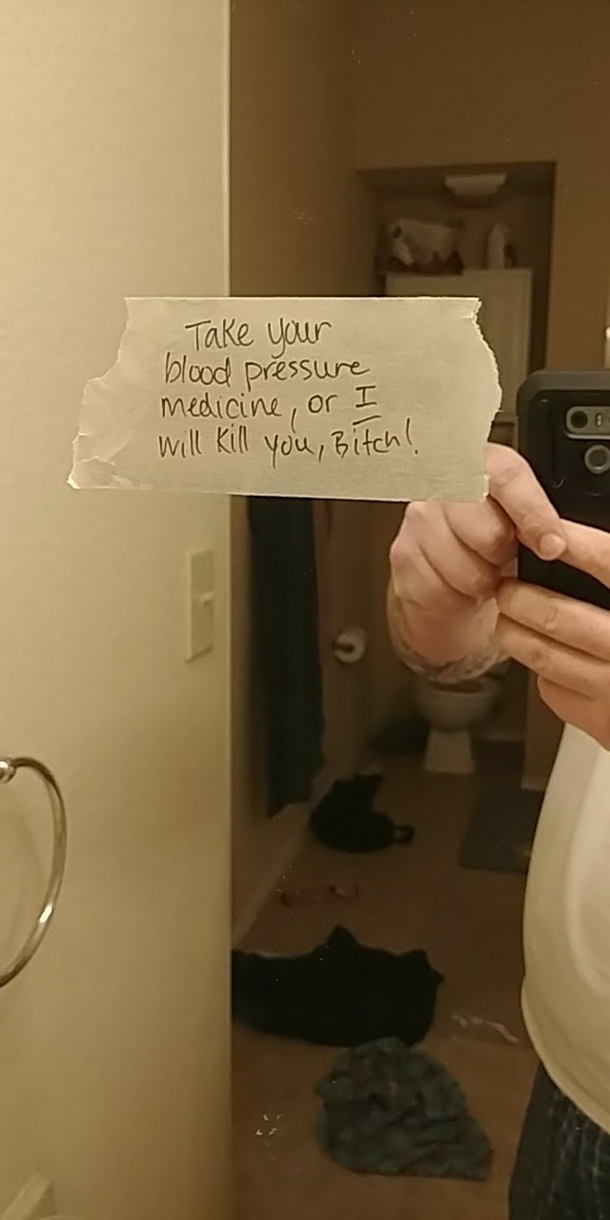 Take your
blood pressure
medicine, or I
will kill you, Bitch!